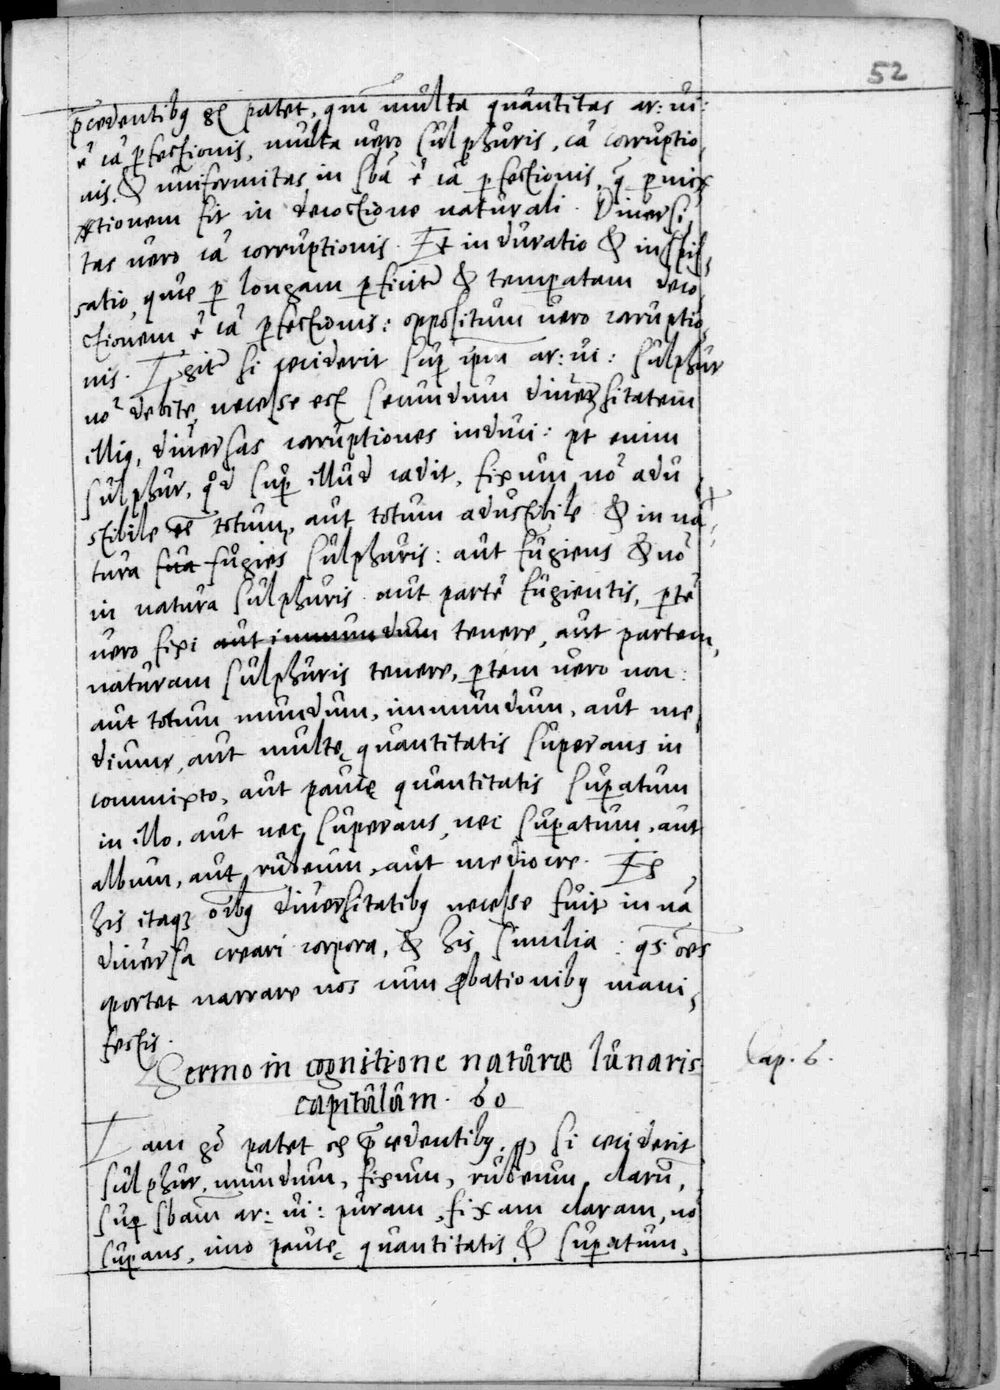 52
p̄cedentibꝰ gͦ patet, qm̄ multa quantitas ar: ui:
ē cā ꝑfectionis, multa uero sulphuris, cā corruptio,
nis. & uniformitas in sbā ē cā ꝑfectionis, q̄ ꝑ mix
tionem fit in decoctione naturali. Diuersi,
tas uero cā corruptionis. Et induratio & inspis,
satio, que ꝑ longam ꝑficit̄ & temꝑatam deco,
ctionem ē cā ꝑfectionis: oppositum uero corruptio,
nis. Igit̄ si ceciderit suꝑ ip̄m ar: ui: sulphur
nō debite, necesse est secundum diuersitatem
illiꝰ, diuersas corruptiones induci: pt̄ enim
sulphur, qd̄ suꝑ illud cadit, fixum nō adu
stibile eē totum, aut totum adustibile & in na
tura sua fugiēs sulphuris: aut fugiens & nō
in natura sulphuris. aut partē fugientis, ꝑtē
uero fixi aut immundum tenere, aut partem,
naturam sulphuris tenere, ꝑtem uero non:
aut totum mundum, immundum, aut me,
dium, aut multę quantitatis superans in
commixto, aut paucę quantitatis suꝑatum
in illo, aut nec superans, nec suꝑatum, aut
album, aut rubeum, aut mediocre. Ex
his itaqꝫ oībꝰ diuersitatibꝰ necesse fuit in nā
diuersa creari corpora, & his similia: qs oēs
oportet narrare nos cum ꝓbationibꝰ mani,
festis.
Sermo in cognitione naturæ lunaris
capitulum. 60
Cap. 6.
Iam gͦ patet ex p̄cedentibꝰ, ꝙ si ceciderit
sulphur, mundum, fixum, rubeum, clarū,
suꝑ sbam̄ ar: ui: puram, fixam claram, nō
suꝑans, imo paucę quantitatis & suꝑatum,